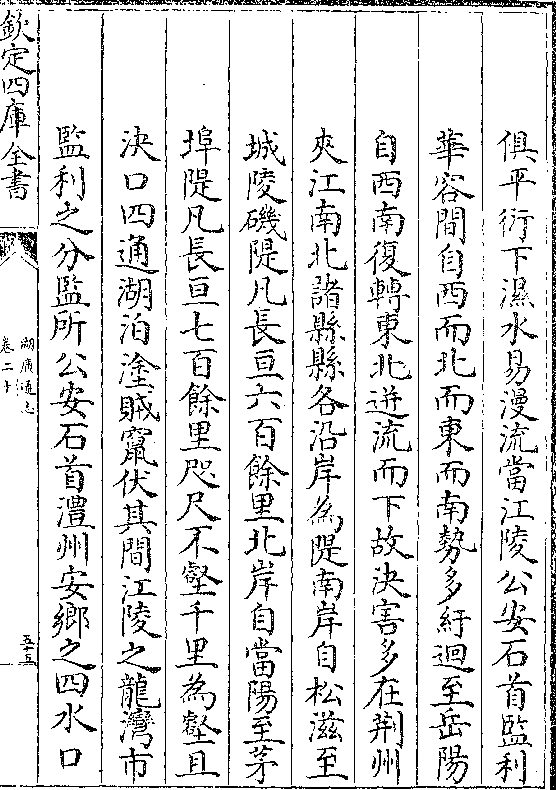 俱平衍下濕水易漫流當江陵公安石首監利
華容間自西而北而東而南勢多紆迴至岳陽
自西南復轉東北迸流而下故決害多在荆州
夾江南北諸縣縣各沿岸為隄南岸自松滋至
城陵磯隄凡長亘六百餘里北岸自當陽至茅
埠隄凡長亘七百餘里咫尺不堅千里為壑且
決口四通湖泊塗賊竄伏其間江陵之龍灣市
監利之分監所公安石首澧州安鄉之四水口
欽定四庫全書
湖廣通志
卷二十
五十五